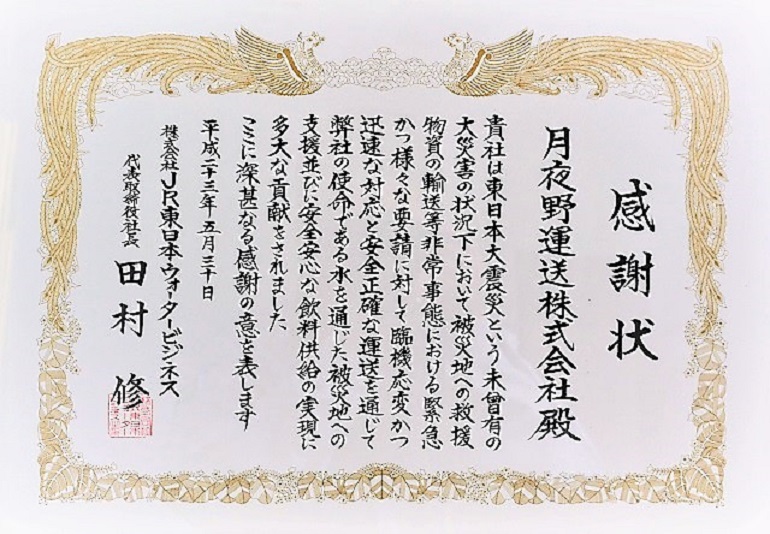 感謝状
月夜野運送株式会社殿
貴社は東日本大震災という未曾有の
大災害の状況下において被災地への救援
物資の輸送等非常事態における緊急
かつ様々な要請に対して臨機応変かつ
迅速な対応と安全正確な運送を通じて
弊社の使命である水を通じた被災地への
支援並びに安全安心な飲料供給の実現に
多大な貢献をされました
ここに深甚なる感謝の意を表します
平成二十三年五月三十日
株式会社JR東日本ウォータービジネス
代表取締役社長 田村 修